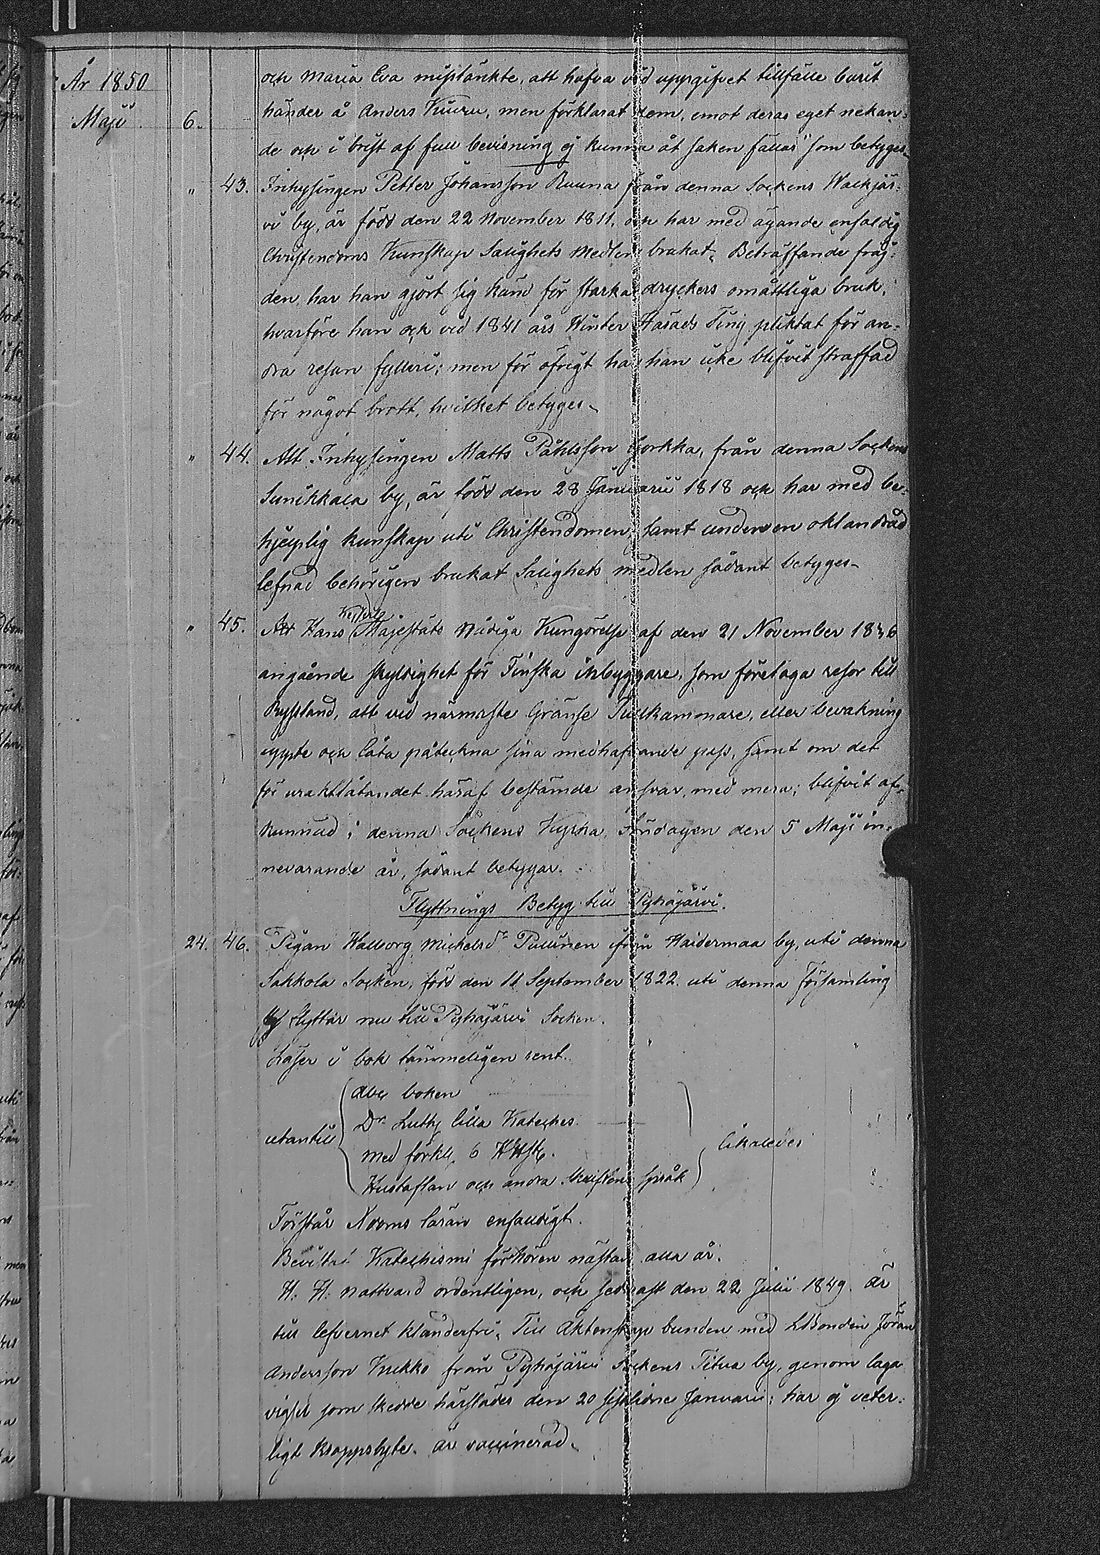 År 1850
och Maria Eva misstänkte, att hafva vid uppgifvet tillfälle burit
Maji 6. händer å Anders Kiuru, men förklarat dem, emot deras eget nekan-
de och i brist af full bevisning ej kunna åt saken fällas som betyges.
" 43. Inhysingen Petter Johansson Ruuna från denna Sockens
vi by, är född den 22 November 1811, och har med ägande enfaldig
Christendoms Kunskap Salighets Medlen brukat. Beträffande fräg-
den har han gjort sig känd för starka dryckers omåttliga bruk,
hvarföre han ock vid 1841 års Winter Härads Ting pliktat för an-
dra resan fylleri; men för öfrigt har han icke blifvit straffad
för något brott, hvilket betyges.
" 44. Att Inhysingen Matts Påhlsson från denna Sockens
Sunikkala by, är född den 28 Januarii 1818 och har med be-
hjelplig kunskap uti Christendomen, samt under en oklandrad
lefnad behörigen brukat Salighets medlen sådant betyges.
" 45. Att Hans Kejserliga Majestäts Nådiga Kungörelse af den 21 November 1836
angående skyldighet för Finska inbyggare, som företaga resor till
Ryssland, att vid närmaste Gränse Tullkammare, eller bevakning
uppte och låta påteckna sina medhafvande pass, samt om det
för uraktlåtandet häraf bestämde ansvar, med mera; blifvit af-
kunnad i denna Sockens Kyrka Söndagen den 5 Maji in-
nevarande år, sådant betygar.
Flyttnings Betyg till Pyhäjärvi.
24. 46. Pigan Walborg Michelsdr Puuinen ifrån Haidermaa by, uti denna
Sakkola Socken, född den 11 September 1822 uti denna Församling
flyttar nu till Pyhäjärvi Socken.
Läser i bok tämmeligen rent.
utantill
Abc boken
Dr Luth. lilla Kateches.
med förkl.
Hustaflan och andra Skriftens språk
likaledes
Förstår Normens läran enfaldigt.
Bevistat Katechismi förhören nästan alla år.
H. H. Nattvard ordentligen, och sednast den 22 Julii 1849. är
till lefvernet klanderfri. Till Äktenskap bunden med Jöran
Andersson Kukko från Pyhäjärvi Sockens by, genom laga
vigsel som skedde härstädes den 20 sistlidne Januarii; har ej veter-
ligt kroppslyte. är vaccinerad.